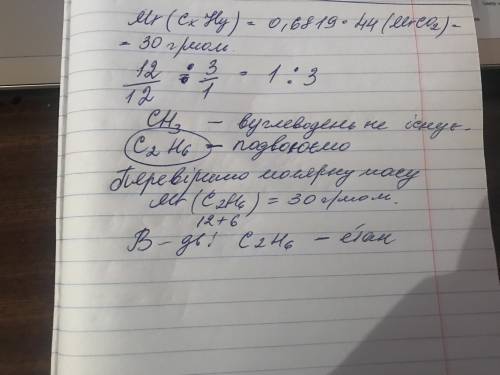 Mr (CxHy) = 0,6819 * 44 (MrCO2) =
= 30 г/моль
12/12 : 3/1 = 1 : 3
CH3 – вуглеводень не існує.
C2H6 – подвоюємо
Перевіримо молярну масу
Mr (C2H6) = 30 г/моль.
12+6
В-дь: C2H6 – етан